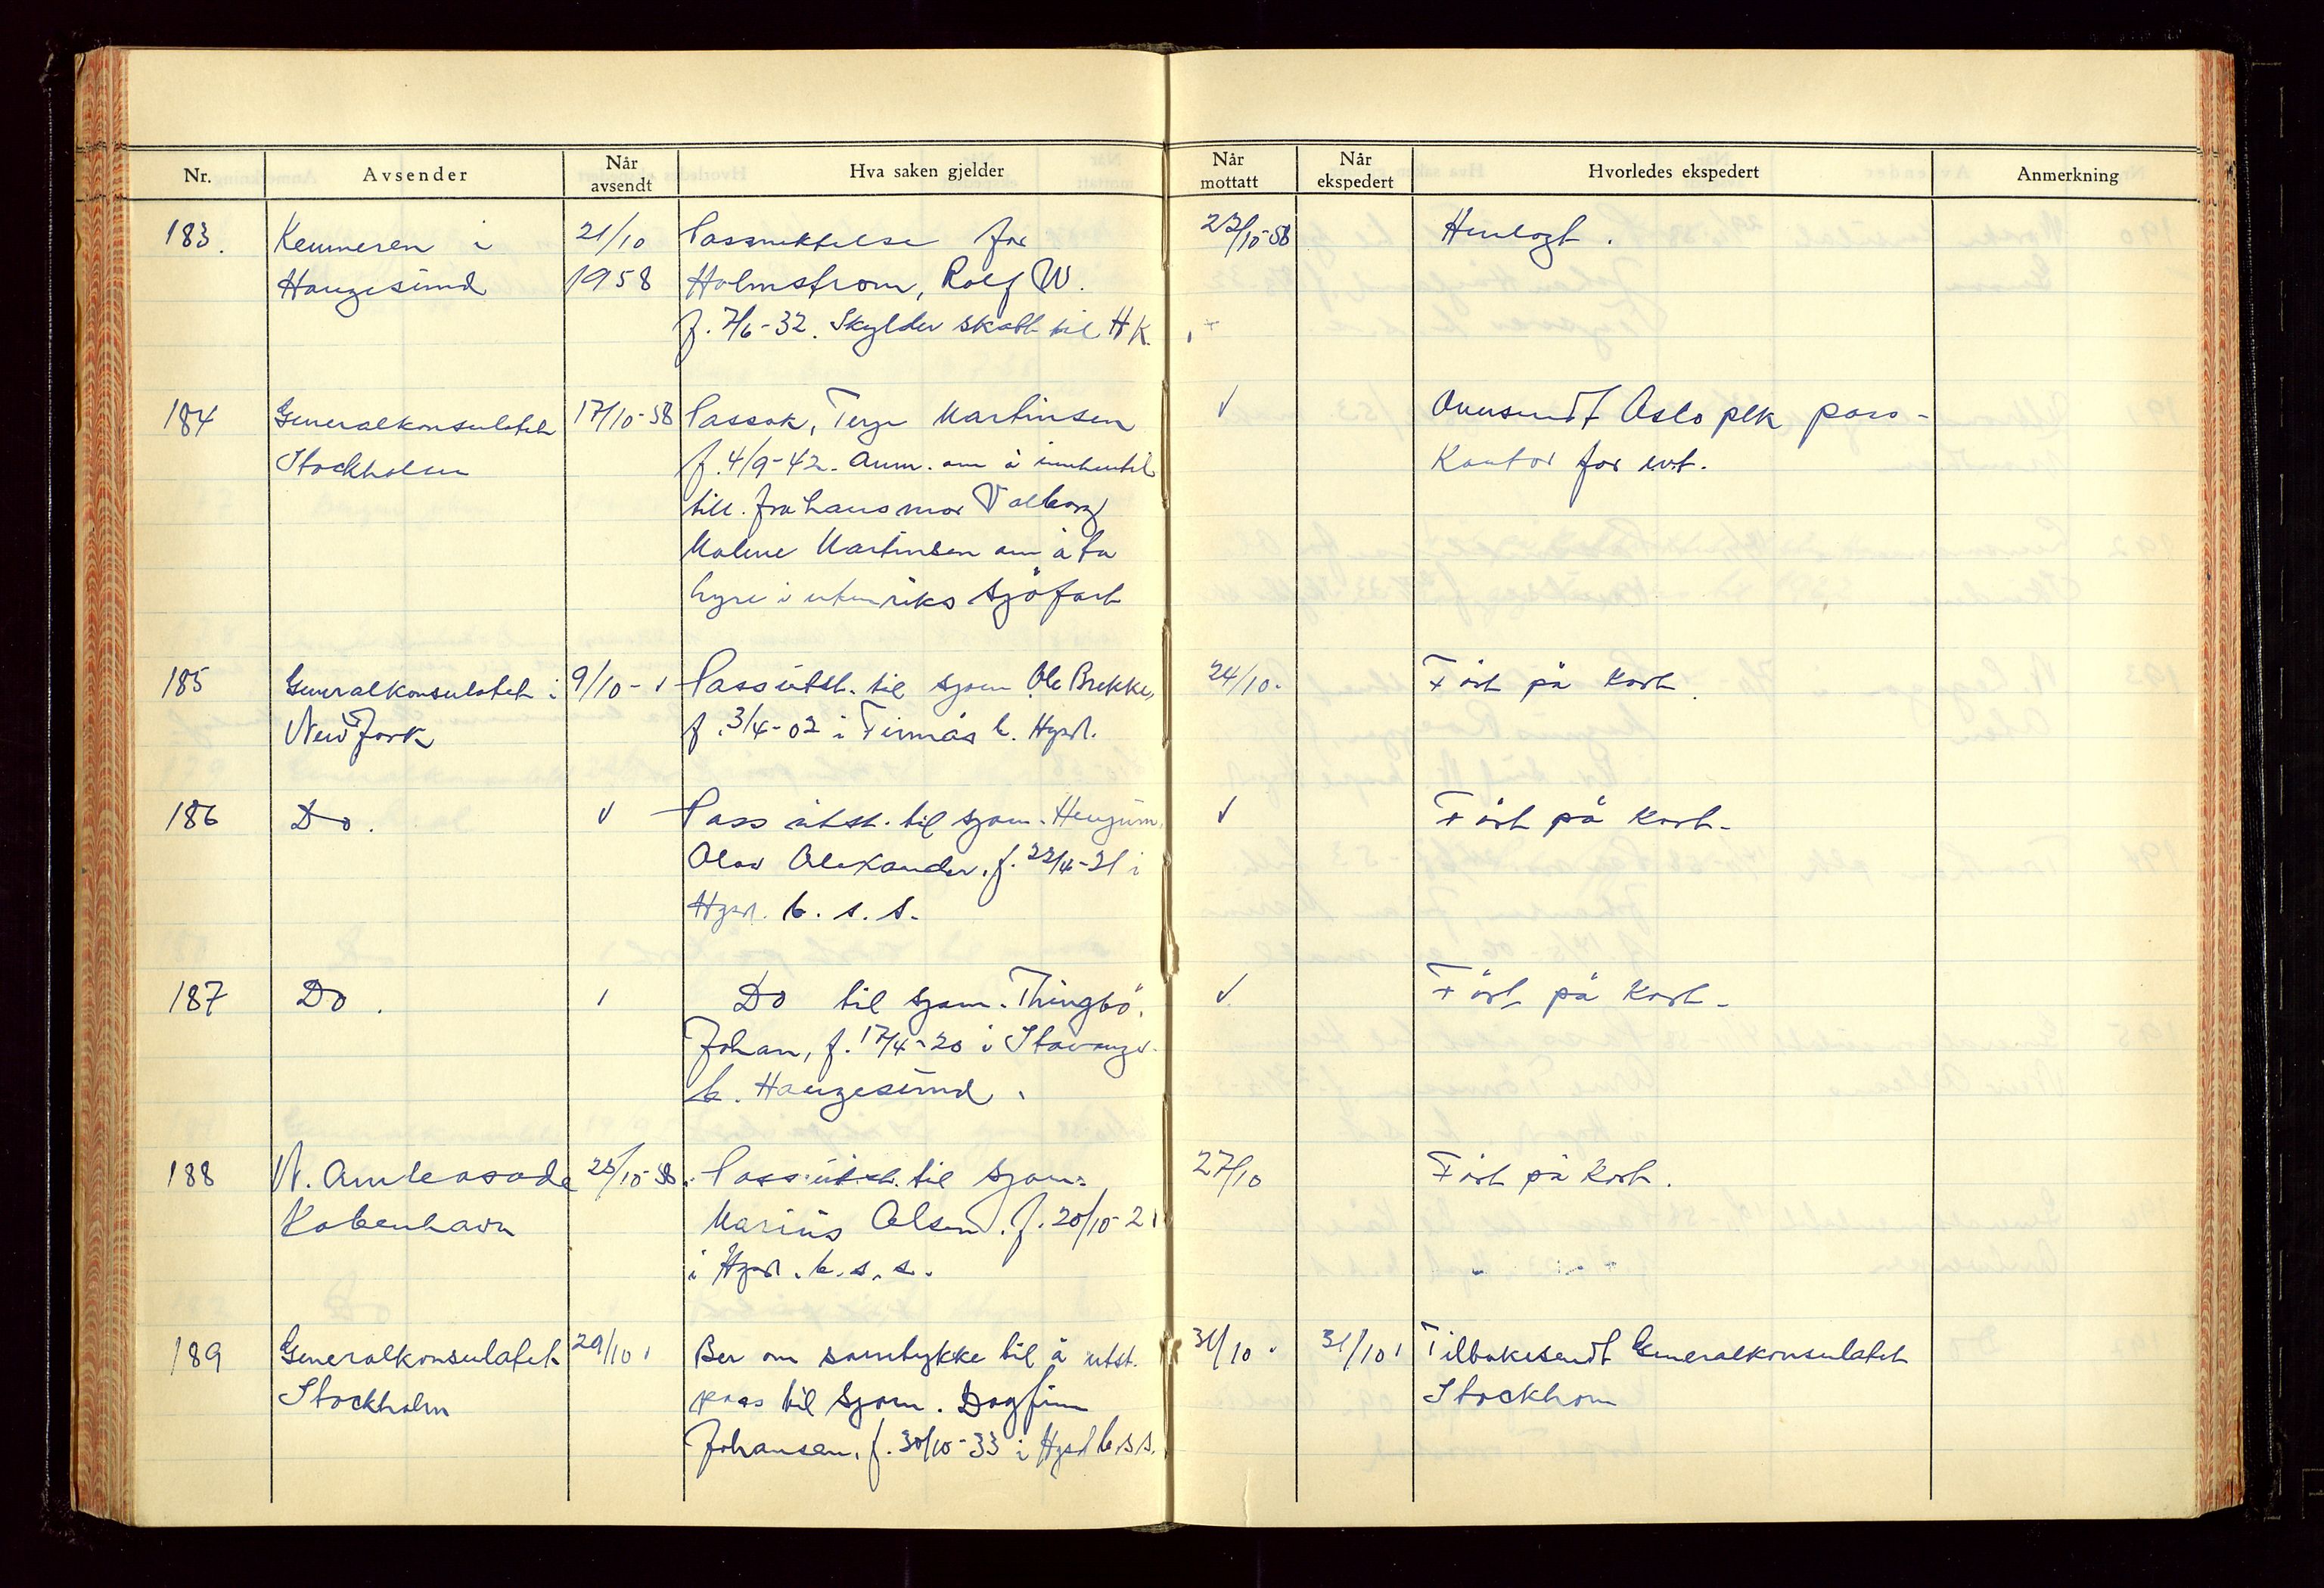 Nr. Avsender Når avsendt Hva saken gjelder Når mottatt Når ekspedert Hvorledes ekspedert Anmerkning
183. Kemneren i 21/10 Passnektelse for 23/10-58 Henlagt.
Haugesund 1958 Holmstrom, Rolf W.
f. 7/6-32. Skylder skatt til HK.
184 Generalkonsulatet 17/10-58 Passøk, Terje Martinsen √ Oversendt Oslo plk pass-
Stockholm f. 4/9-42. Anm. om å innhente Kontor for evt.
till. fra hans mor Valborg
Malene Martinsen om å ta
hyre i utenriks sjöfart
185 Generalkonsulatet i 9/10- Pass utst. til sjøm Ole Brekke, 24/10. Fört på kort.
New York f. 3/4-02 i b. Hgsd.
186 Do. √ Pass utst. til sjøm. √ Fört på kort-
Olav Alexander, f. 22/4-21 i
Hgsd. b. s. s.
187 Do. Do til sjøm. Thingbö, √ Fört på kort-
Johan, f. 17/4-20 i Stavanger
b. Haugesund.
188 N. Ambassade 25/10-58. Pass utst. til sjøm. 27/10 Fört på kort.
Kobenhavn Marius Olsen. f. 20/10-21
i Hgsd. b. s. s.
189 Generalkonsulatet 29/10 Ber om samtykke til å utst. 31/10. 31/10 Tilbakesendt Generalkonsulatet
Stockholm pass til sjøm. Dagfinn Stockhom
Johansen, f. 30/10-33 i Hgsd b.s.s.